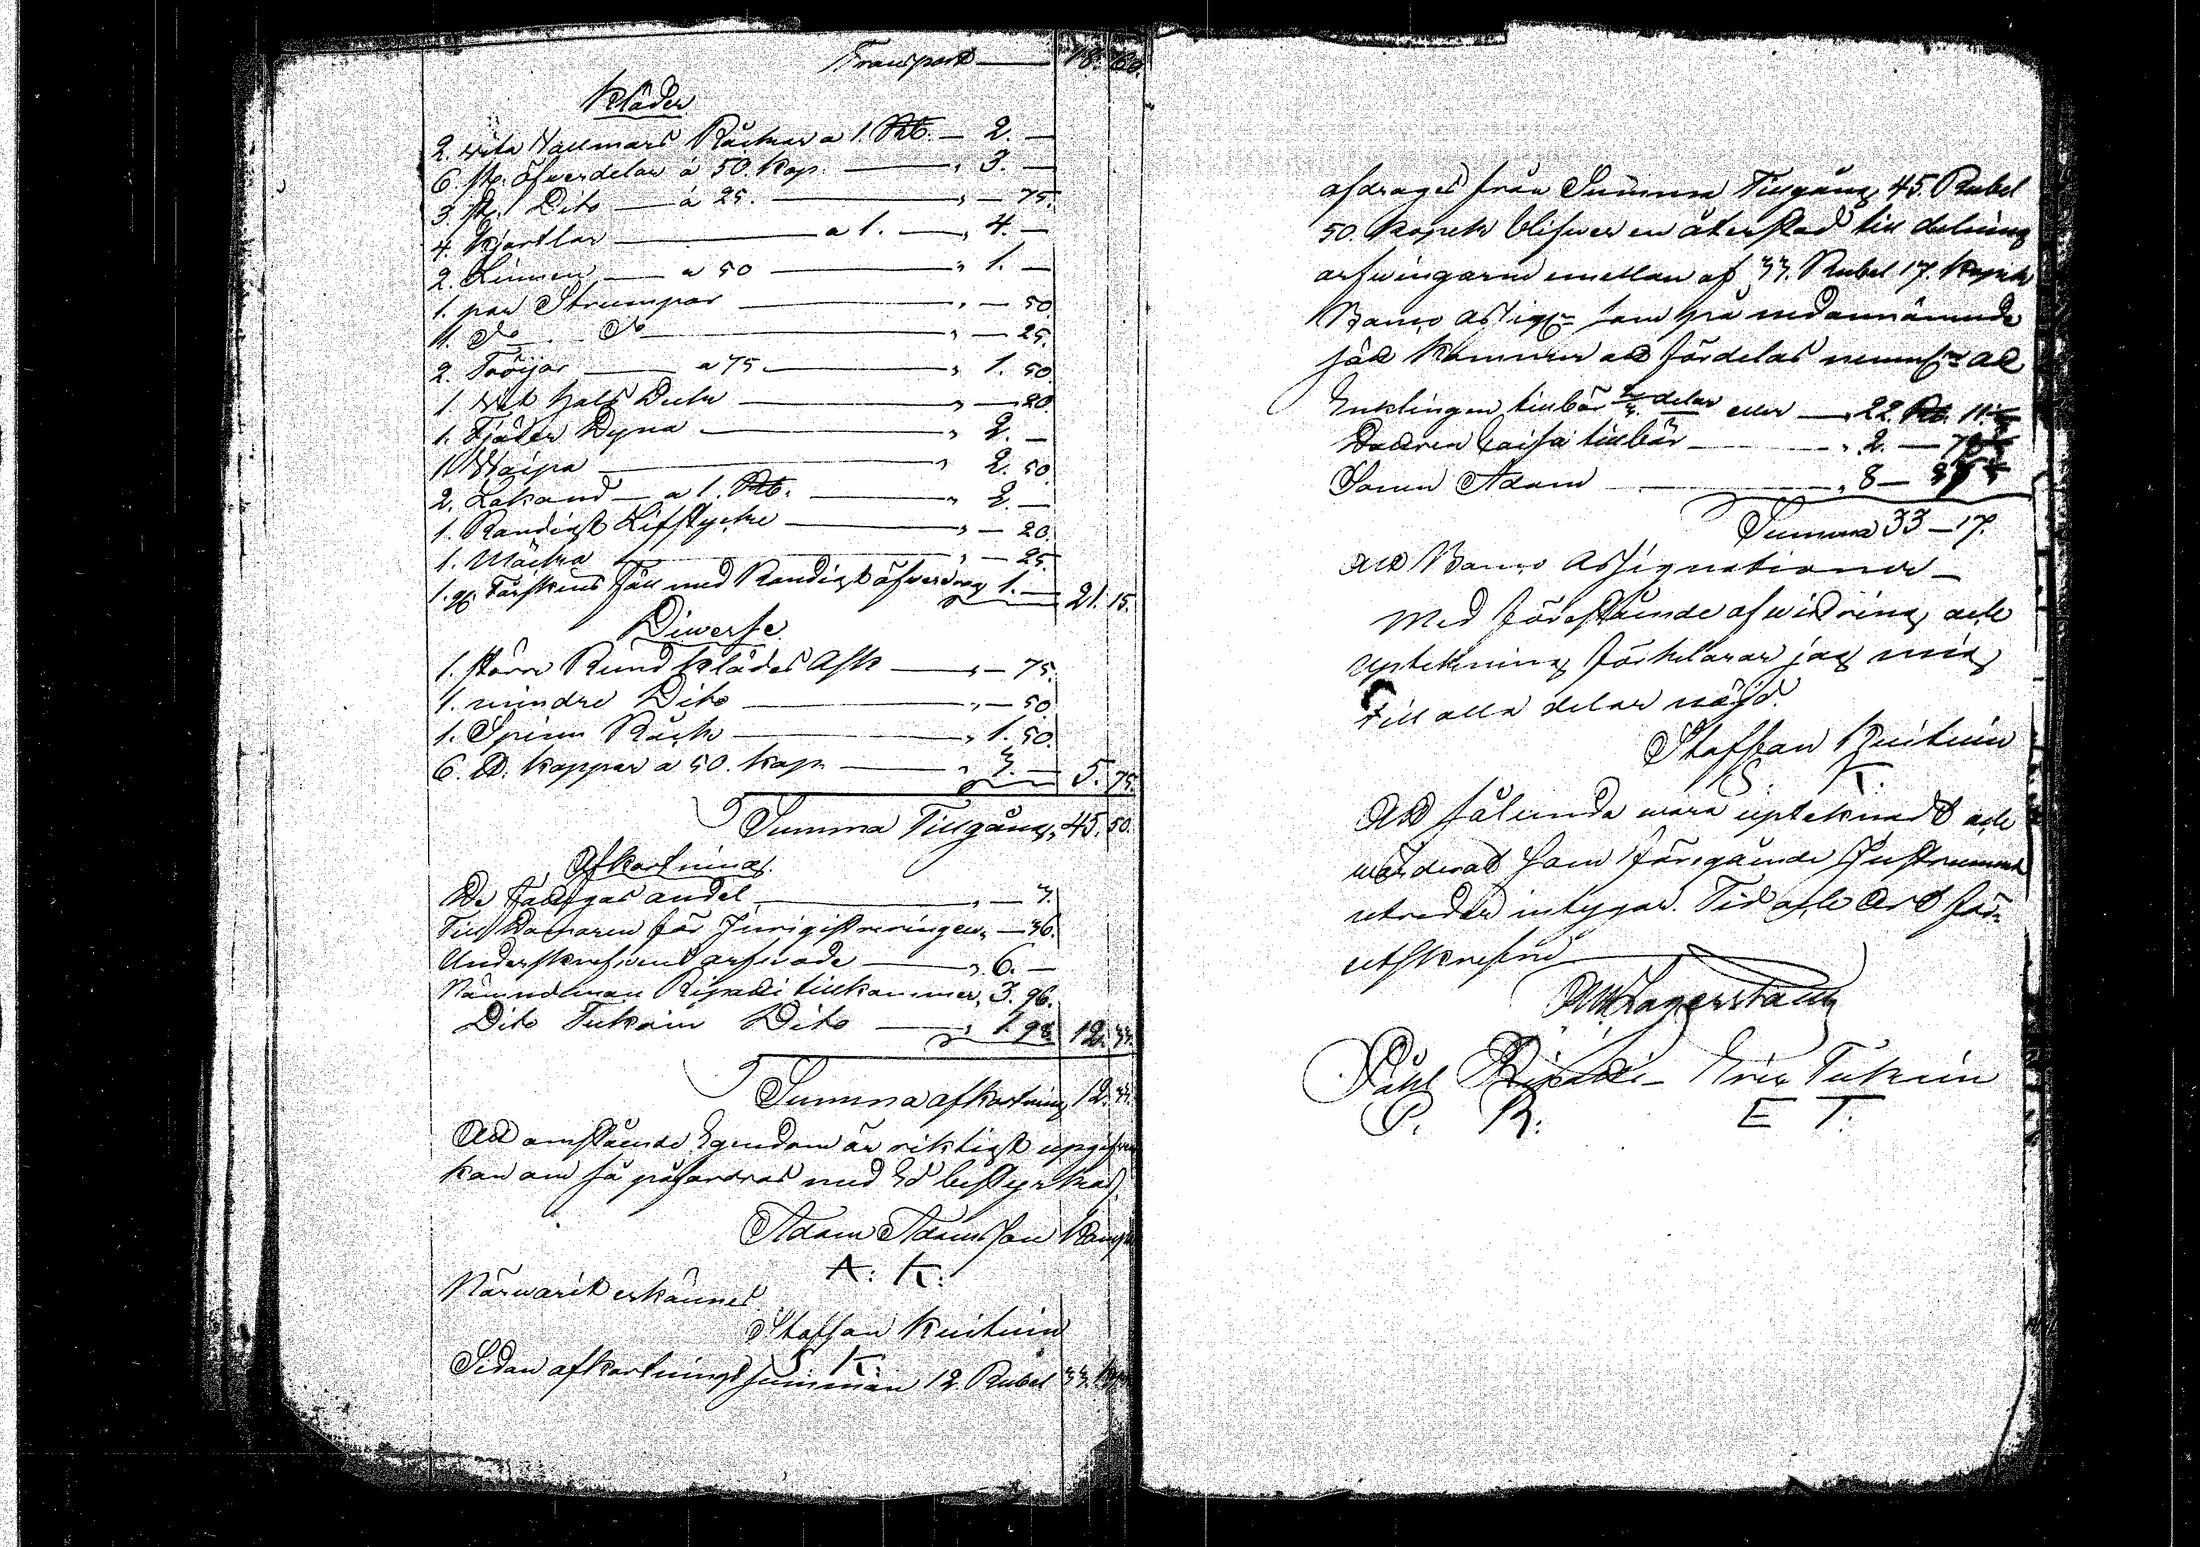 Transport — 18. 60.
Kläder
2. wita Wallmars Råckar a 1. Rb. — 2. —
6. st. öfverdelar á 50. kop. — " 3. —
3. st. Dito — á 25. — " — 75.
4. Kjortlar — a 1. — " 4. —
2. Linnen — a 50 — " 1. —
1. par Strumpor — " — 50
1. Do Do — " — 25.
2. Tröijor — a 75 — " 1. 50
1. wit hals Duk — " — 20
1. Fjäder Dyna — " 2. —
1. Waipa — " 2. 50
2. Lakand — a 1. Rb. — " 2. —
1. Randigt Lifstycke — " — 20.
1. Mössa — " — 25.
1. gl. Fårskins Fäll med Randigt öfverdrag 1. — 21. 15.
Diverse
1. större Rund klädes Ask — " — 75.
1. mindre Dito — " — 50
1. Spinn Råck — " 1. 50.
6. St. koppar a 50. kop. — " 3. — 5. 75.
Summa Tillgång, 45. 50.
Afkortning.
De Fattigas andel — " — 3.
Till Domaren för Inregistreringen " — 36.
Underskrifvens arfvode — " 6. —
Nämndeman Ripatti tillkommer, 3. 96.
Dito Tukain Dito — " 1. 98 12. 33.
Summa afkortning 12. 33.
Att omstående Egendom är riktigt upgifven
kan om så påfordras med Ed bestyrkas,
Adam Adamsson
A: K:
Närwarit erkännes
Staffan Kuituin
S. K:
Sedan afkortnings summan 12. Rubel 33. kop.
afdrages från Summa Tillgång 45. Rubel
50. kopek blifwer en återstod till delning
arfwingarne emellan af 33. Rubel 17. kopek
Banco Assign: som på nedannämnde
sätt kommer att fördelas nemn: at
Enklingen tillbör 2/3 delar eller — 22. Rb. 11.
Dottren Caisa tillbör — " 2. —
Sonen Adam — " 8 —
Summa 33 — 17.
allt Banco Assignationer —
Med förestående afwittring och
uptekning förklarar jag mig
till alla delar nöjd.
Staffan Kuituin
S. K.
Att sålunda wara uptecknadt och
wärderat som föregående Instrument
utreder intygar. Tid och Ort för-
utskrefne
Lagerstam
Påhl Ripatti — Eric Tukuin
P. R: E T: